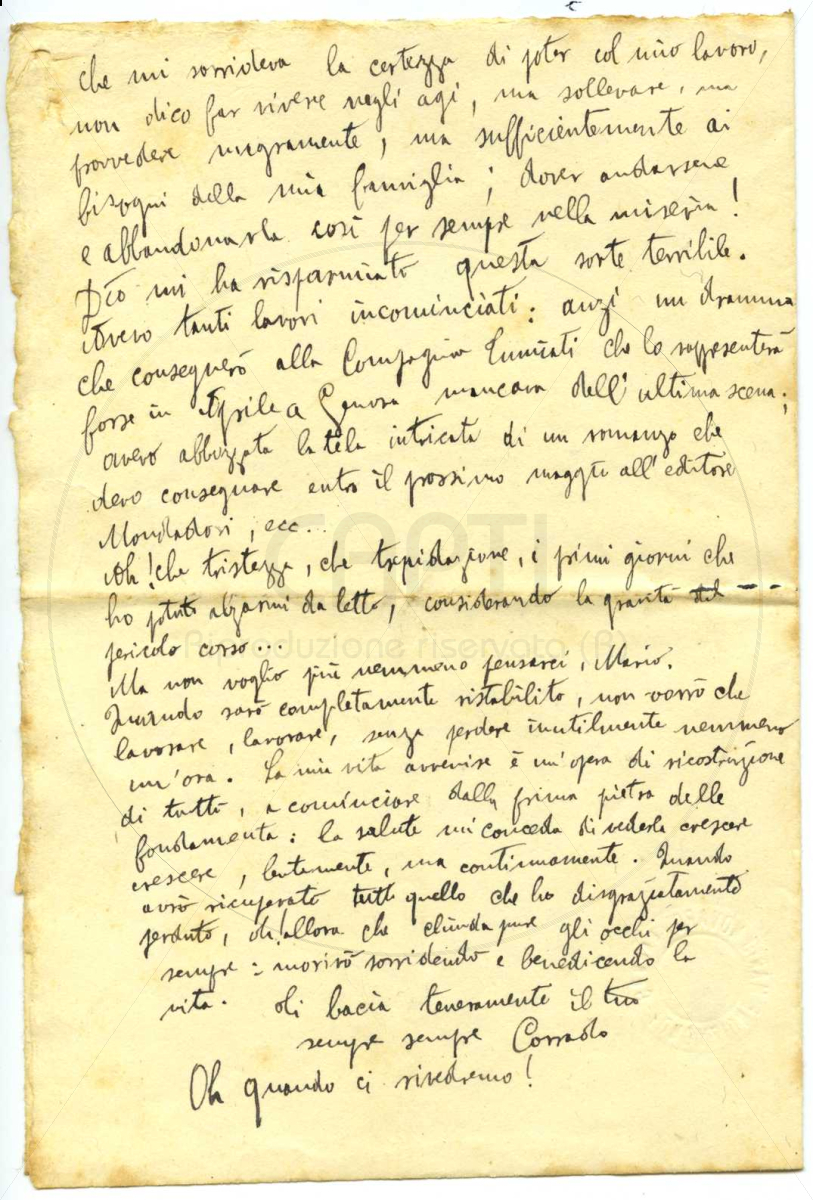 che mi sorrideva la certezza di poter col mio lavoro,
non dico far vivere negli agi, ma sollevare, ma
provvedere magramente, ma sufficientemente ai
bisogni della mia famiglia; dover andarsene
e abbandonarla così per sempre nella miseria!
Dio mi ha risparmiato questa sorte terribile.
Avevo tanti lavori incominciati: anzi un dramma
che consegnerò alla Compagnia che lo rappresenterà
forse in Aprile a Genova mancava dell'ultima scena;
avevo abbozzata la tela intricata di un romanzo che
devo consegnare entro il prossimo maggio all'editore
Mondadori, ecc...
Ah! che tristezza, che trepidazione, i primi giorni che
ho potuto alzarmi da letto, considerando la gravità del
pericolo corso...
Ma non voglio più nemmeno pensarci, Mario.
Quando sarò completamente ristabilito, non vorrò che
lavorare, lavorare, senza perdere inutilmente nemmeno
un'ora. La mia vita avvenire è un'opera di ricostruzione
di tutto, a cominciare dalla prima pietra delle
fondamenta: la salute mi conceda di vederla crescere
crescere, lentamente, ma continuamente. Quando
avrò ricuperato tutto quello che ho disgraziatamente
perduto, oh! allora che chiuda pure gli occhi per
sempre: morirò sorridendo e benedicendo la
vita. Ti bacia teneramente il tuo
sempre sempre Corrado
Oh quando ci rivedremo!
CARTI
Riproduzione riservata (R)